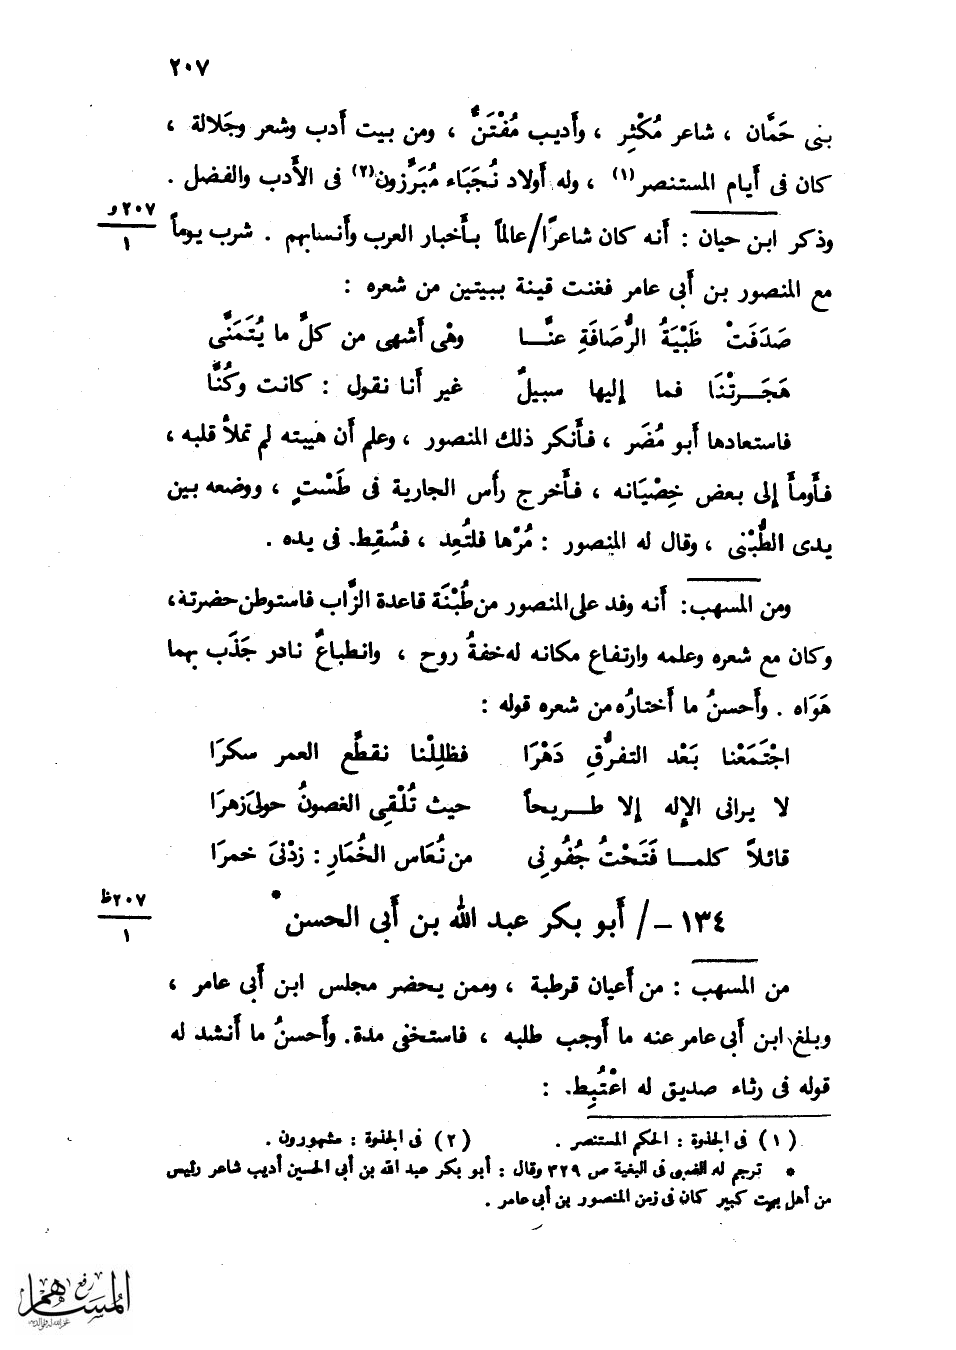 ٢٠٧
بنى حَمَّان ، شاعر مُكْثِر ، وأديب مُفْتَنٌّ ، ومن بيت أدب وشعر وجَلالة ،
كان فى أيام المستنصر(١) ، وله أولاد نُجَبَاء مُبَرَّزون(٢) فى الأدب والفضل .
وذكر ابن حيان : أنه كان شاعرًا/عالماً بأخبار العرب وأنسابهم . شرب يوماً
٢٠٧و
١
مع المنصور بن أبى عامر فغنت قينة ببيتين من شعره :
صَدَفَتْ ظَبْيَةُ الرُّصَافَةِ عنَّــا وهْى أَشهى من كلِّ ما يُتَمَنَّى
هَجَــرتْنَا فما إليها سبيلٌ غير أَنا نقول : كانت وكُنَّا
فاستعادها أَبو مُضَر ، فأَنكر ذلك المنصور ، وعلم أَن هَيبته لم تملأْ قلبه ،
فأَومأَ إلى بعض خِصْيَانه ، فأَخرج رأْس الجارية فى طَسْتٍ ، ووضعه بين
يدى الطُّبْنى ، وقال له المنصور : مُرْها فلتُعِد ، فسُقِط. فى يده .
ومن المسهب : أَنه وفد على المنصور من طُبْنَة قاعدة الزَّاب فاستوطن حضرتة،
وكان مع شعره وعلمه وارتفاع مكانه له خفةُ روح ، وانطباعٌ نادر جَذَب بهما
هَوَاه . وأَحسنُ ما أَختارُه من شعره قوله :
اجْتَمَعْنا بَعْد التفرُّقِ دَهْرَا فظلِلْنا نقطِّع العمر سكرَا
لا يرانى الإله إلا طــريحاً حيث تُلْقِى الغصونُ حولى زهرَا
قائلاً كلمــا فَتَحْتُ جُفُونِى من نُعَاس الخُمَارِ : زدْنىَ خمرَا
١٣٤ – / أَبو بكر عبد الله بن أَبى الحسن *
٢٠٧ظ
١
من المسهب : من أَعيان قرطبة ، وممن يحضر مجلس ابن أَبى عامر ،
وبلغ ابن أَبى عامر عنه ما أَوجب طلبه ، فاستخفى مدة. وأَحسنُ ما أَنشد له
قوله فى رثاء صديق له اعْتُبِط. :
(١) فى الجذوة : الحكم المستنصر . (٢) فى الجذوة : مشهورون .
* ترجم له الضبى فى البغية ص ٣٢٩ وقال : أبو بكر عبد الله بن أبى الحسين أديب شاعر رئيس
من أهل بيت كبير كان فى زمن المنصور بن أبى عامر .
رفع
المساهم